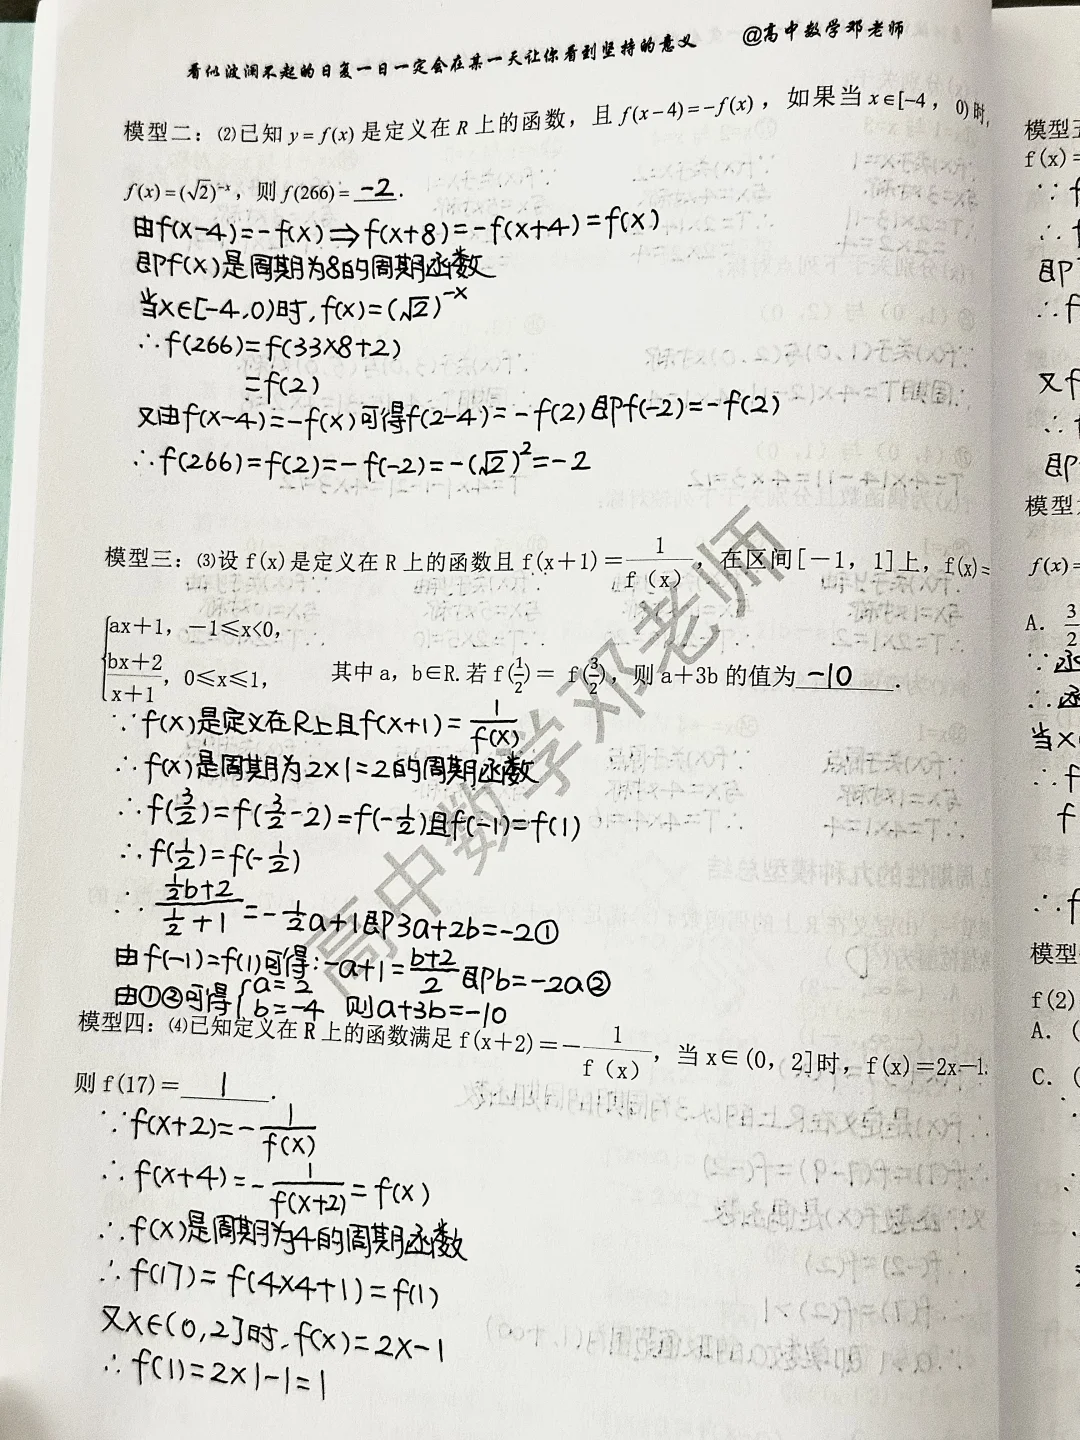 看似波澜不起的日复一日一定会在某一天让你看到坚持的意义 @高中数学邓老师
模型二：⑵已知 y=f(x) 是定义在 R 上的函数，且 f(x-4)=-f(x)，如果当 x∈[-4，0)时，
f(x)=(√2)^{-x}，则 f(266)= -2 .
由f(x-4)=-f(x)⇒f(x+8)=-f(x+4)=f(x)
即f(x)是周期为8的周期函数
当x∈[-4,0)时,f(x)=(√2)^{-x}
∴f(266)=f(33×8+2)
=f(2)
又由f(x-4)=-f(x)可得f(2-4)=-f(2)即f(-2)=-f(2)
∴f(266)=f(2)=-f(-2)=-(√2)²=-2
模型三：⑶设 f(x)是定义在 R 上的函数且 f(x+1)=1/f（x），在区间[-1，1]上，f(x)=
{ax+1，-1≤x<0,
(bx+2)/(x+1)，0≤x≤1, 其中 a，b∈R.若 f(1/2)= f(3/2)，则 a+3b 的值为 -10 .
∵f(x)是定义在R上且f(x+1)=1/f(x)
∴f(x)是周期为2×1=2的周期函数
∴f(3/2)=f(3/2-2)=f(-1/2)且f(-1)=f(1)
∴f(1/2)=f(-1/2)
∴(1/2b+2)/(1/2+1)=-1/2a+1即3a+2b=-2①
由f(-1)=f(1)可得:-a+1=(b+2)/2即b=-2a②
由①②可得{a=2 b=-4 则a+3b=-10
模型四：⑷已知定义在 R 上的函数满足 f(x+2)=-1/f（x），当 x∈(0，2]时，f(x)=2x-1.
则 f(17)= 1 .
∵f(x+2)=-1/f(x)
∴f(x+4)=-1/f(x+2)=f(x)
∴f(x)是周期为4的周期函数
∴f(17)=f(4×4+1)=f(1)
又x∈(0,2]时,f(x)=2x-1
∴f(1)=2×1-1=1
高中数学邓老师
模型五
f(x)=
∵f
∴f
即
∴f
又f
∴f
即
模型
f(x)=
A．3/2
∵
∴
当x
∴f
f
∴f
模型
f(2)
A．(
C．(